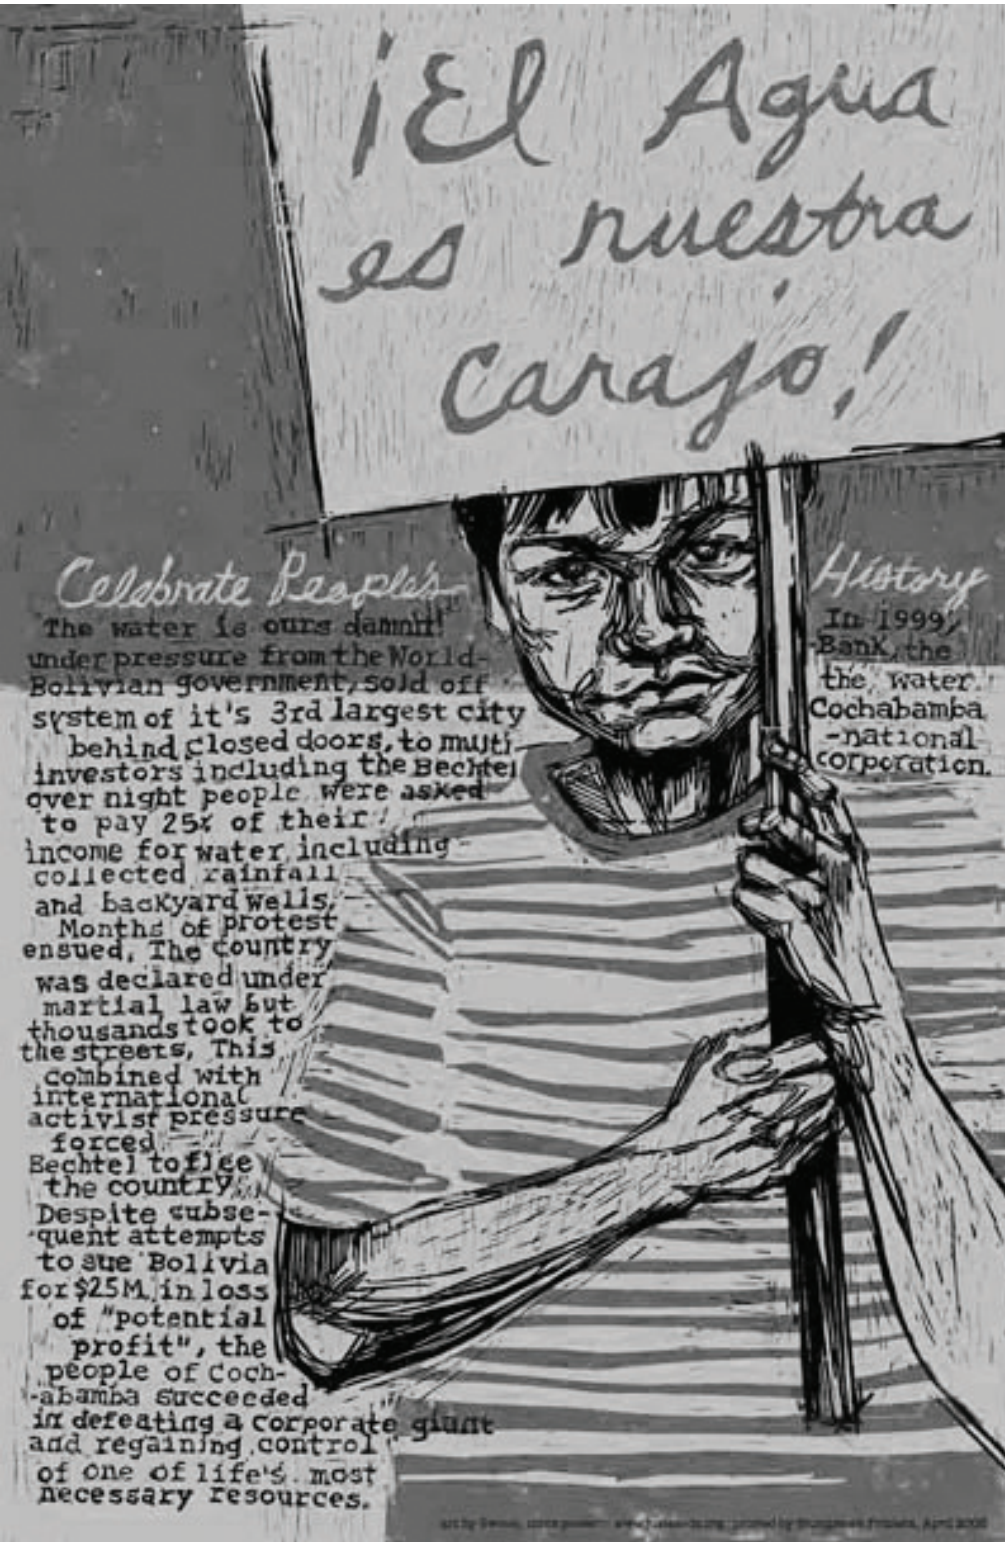 ¡El Agua
es nuestra
carajo!
Celebrate People's History
The water is ours damnit! In 1999,
under pressure from the World- Bank, the
Bolivian government, sold off the water
system of it's 3rd largest city Cochabamba
behind closed doors, to multi- -national
investors including the Bechtel corporation.
over night people were asked
to pay 25% of their
income for water including
collected rainfall
and backyard wells.
Months of protest
ensued. The country
was declared under
martial law but
thousands took to
the streets, This
combined with
international
activist pressure
forced
Bechtel to flee
the country.
Despite subse-
quent attempts
to sue Bolivia
for $25M, in loss
of "potential
profit", the
people of Coch-
-abamba succeeded
in defeating a corporate giant
and regaining control
of one of life's most
necessary resources.
art by printed by April